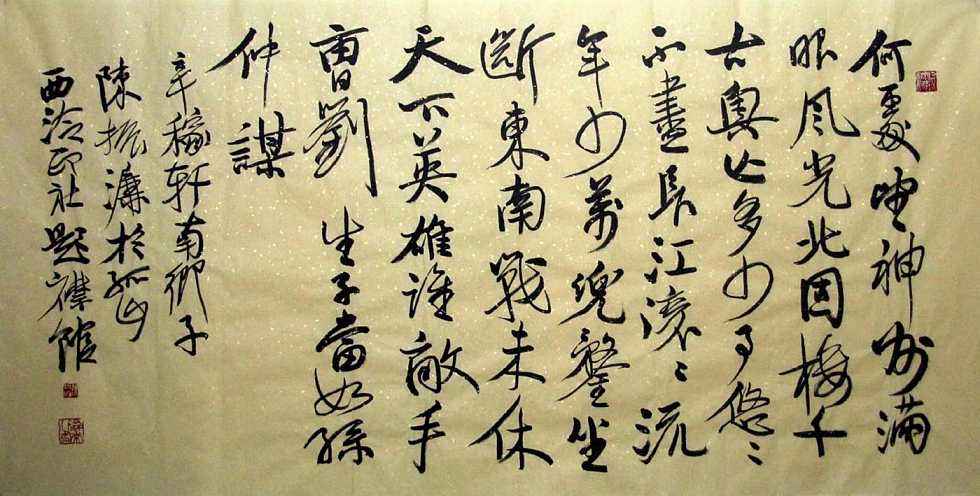 何處望神州滿
眼风光北固楼千
古興亡多少事悠〻
不盡長江滚〻流
年少萬兜鍪坐
斷東南戰未休
天下英雄誰敵手
曹劉 生子當如孫
仲謀
辛稼轩南鄉子
陳振濂於孤山
西泠印社題襟館